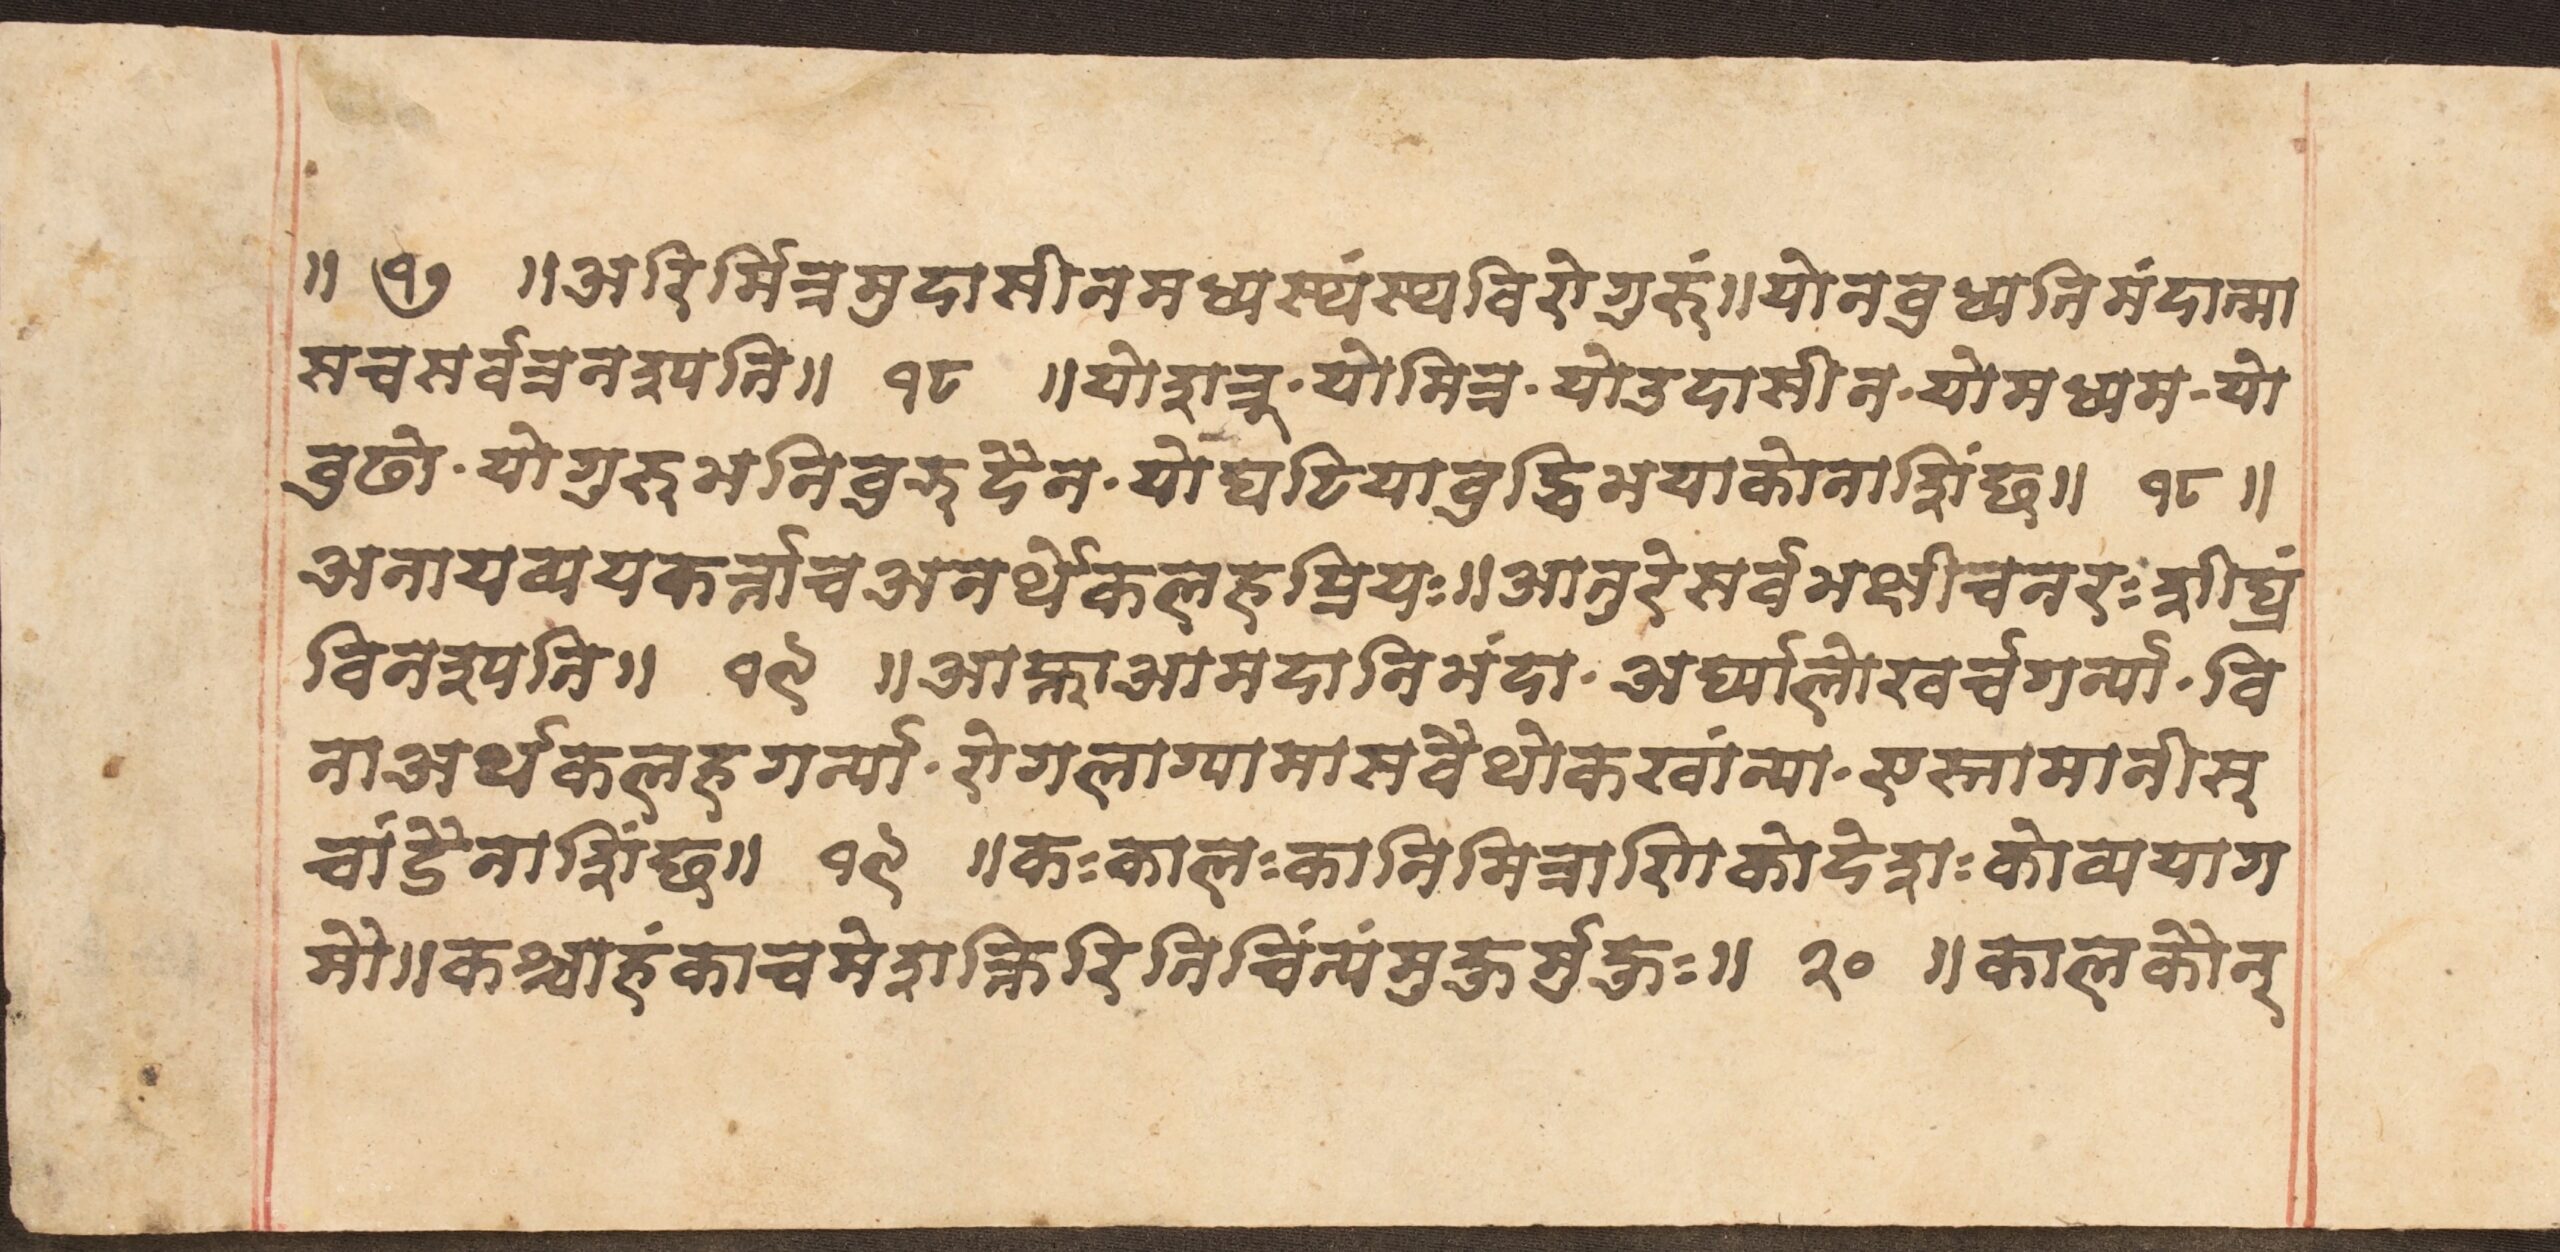 ॥ १७ ॥अरिर्मित्रमुदासीनमध्यस्थंस्थविरोगुरुं॥योनबुध्यतिमंदात्मा
सचसर्वत्रनश्यति॥ १८ ॥योशत्रू·योमित्र·योउदासीन·योमध्यम-यो
बुढो·योगुरुभनिबुझ्दैन·योघटियाबुद्धिभयाकोनाशिंछ॥ १८ ॥
अनायव्ययकर्त्ताचअनर्थेकलहप्रियः॥आतुरेसर्वभक्षीचनरःशीघ्रं
विनश्यति॥ १९ ॥आफ्नाआमदानिभंदा·अर्घ्यालोखर्चगर्न्या·वि
नाअर्थकलहगर्न्या·रोगलाग्यामासवैथोकखांन्या·एस्तामानीस्
चांडैनाशिंछ॥ १९ ॥कःकालःकानिमित्राणिकोदेशःकोव्ययाग
मौ॥कश्चाहंकाचमेशक्तिरितिचिंत्यंमुहुर्मुहुः॥ २० ॥कालकौन्